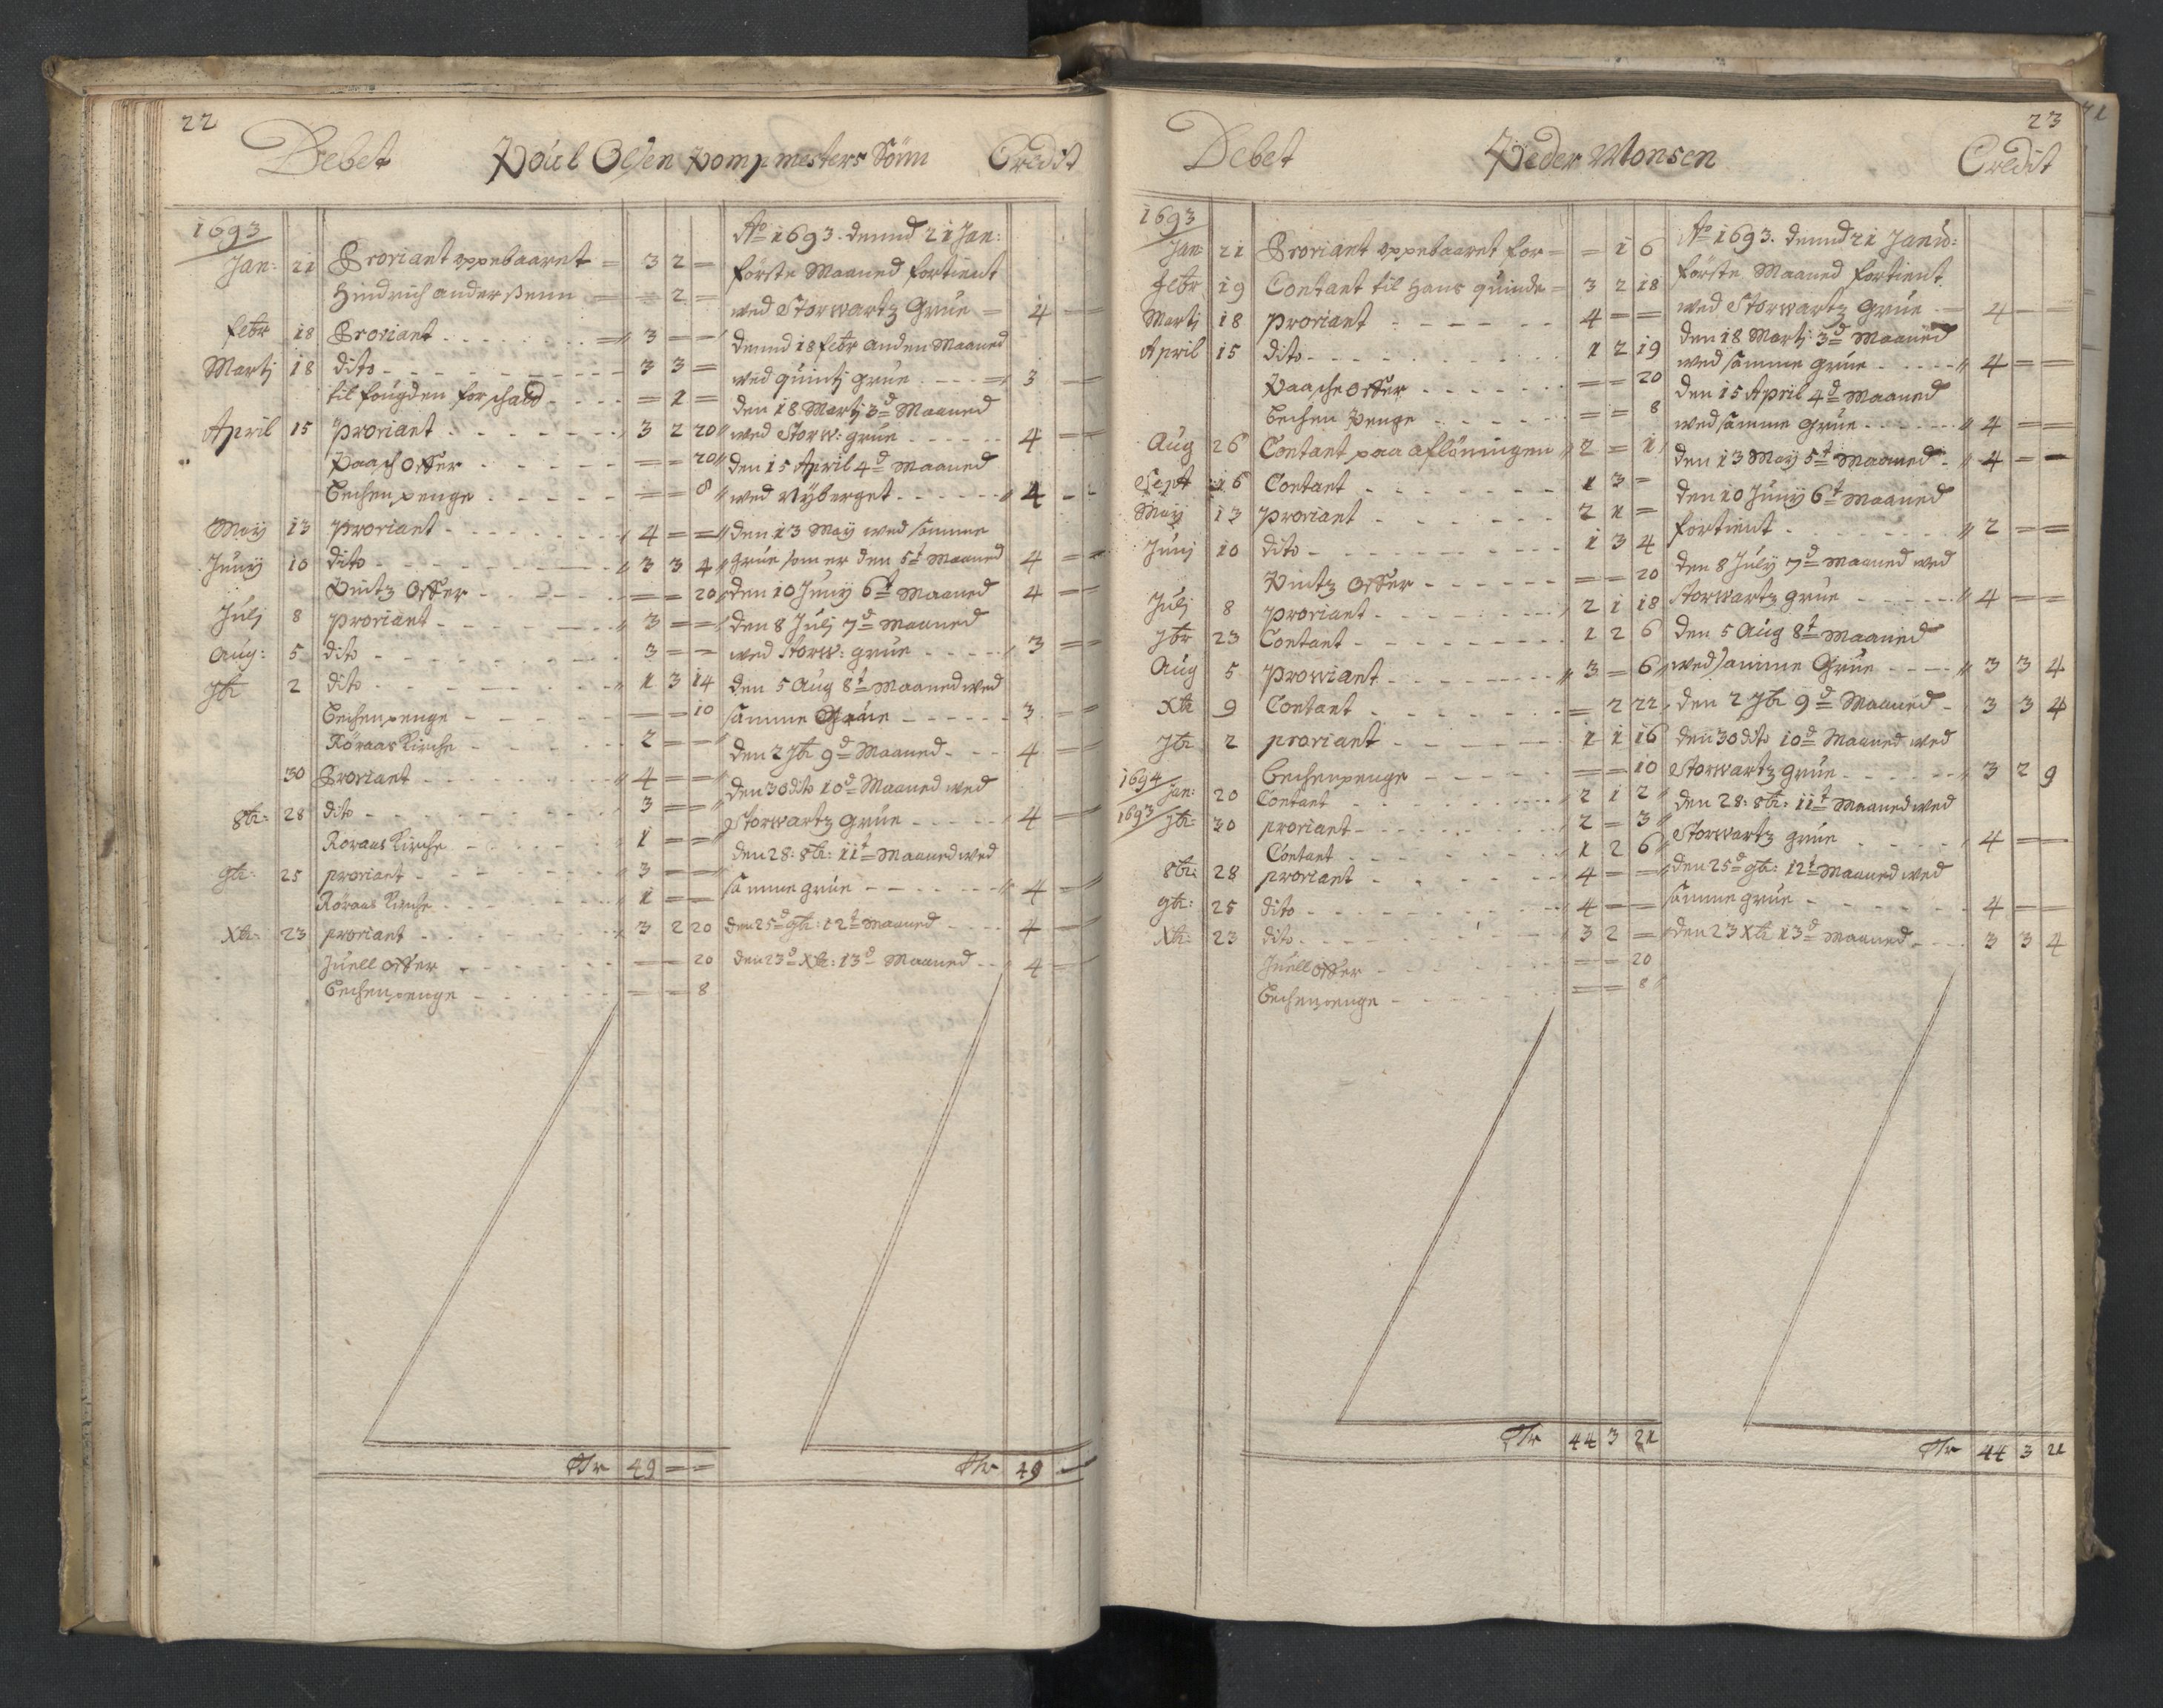 22
Debet Poúl Olsen Pompmesters Sönn Credit
1693
Jan: 21 Proviant oppebaaret = 3 2 =
Hindrich anderßenn = = 2 =
febr 18 Proviant = 3 = =
Martj 18 dito 3 3 =
til foúgden for schatt = 1 =
April 15 proviant 3 2 20
Paasch Offer = = 20
Bechenpenge = = 8
Maÿ 13 proviant 4 = =
Júnÿ 10 dito 3 3 4
Pintz Offer = = 20
Júlj 8 proviant 3 = =
Aúg: 5 dito 3 = =
7br 2 dito 1 3 14
Bechenpenge = = 10
Röraas Kirche 2 = =
30 Proviant 4 = =
8br: 28 dito 3 = =
Röraas Kirche 1 = =
9br: 25 proviant 3 = =
Röraas Kirche 1 = =
Xbr: 23 proviant 3 2 20
Júell offer = = 20
Bechenpenge = = 8
Dlr 49 = =
Ao 1693. dennd 21 Jan:
förste Maaned fortient
wed Storwartz Grúe = 4 =
dennd 18 febr anden Maaned
wed qúintj grúe 3 =
den 18 Martj 3d Maaned
wed Storw: grúe 4 =
den 15 April 4d Maaned
wed Nÿberget 4 =
den 13 Maÿ wed samme
grúe som er den 5t Maaned 4 =
den 10 Júnÿ 6t Maaned 4 =
den 8 Júlj 7d Maaned
wed Storw: grúe 3 =
den 5 Aúg 8t Maaned wed
samme Grúe 3 =
den 2 7br 9d Maaned 4 =
den 30 dito 10d Maaned wed
Storwartz grúe 4 =
den 28: 8br: 11t Maaned wed
samme grúe 4 =
den 25d 9br: 12t Maaned 4 =
den 23d Xbr: 13d Maaned 4 =
Dlr 49 =
23
Debet Peder Monsen Credit
1693
Jan 21 Proviant oppebaaret for = = 1 6
febr 19 Contant til Hans qúinde = 3 2 18
Martj 18 proviant 4 = =
April 15 dito 1 2 19
Paasche Offer = = 20
Bechen Penge = = 8
Aúg 26 Contant paa aflöningen 2 = 1
Sept 16 Contant 1 3 =
Maÿ 13 proviant 2 1 =
Júnj 10 dito 1 3 4
Pintz Offer = = 20
Júlj 8 proviant 2 1 18
7br 23 Contant 1 2 6
Aúg 5 prowiant 3 = 6
Xbr 9 Contant = 2 22
7br 2 proviant 1 1 16
Bechenpenge = = 10
1694 Jan: 20 Contant 2 1 2
1693 7br: 30 proviant 2 = 3
Contant 1 2 6
8br: 28 proviant 4 = =
9br: 25 dito 4 = =
Xbr: 23 dito 3 2 =
Júell offer = = 20
Bechenpenge = = 8
Dlr 44 3 21
Ao 1693. dennd 21 Janú:
förste Maaned fortient
wed Storwartz Grúe 4 =
den 18 Martj 3d Maaned
wed samme grúe 4 = =
den 15 April 4d Maaned
wed samme grúe 4 = =
den 13 Maÿ 5t Maaned 4 = =
den 10 Júnÿ 6t Maaned
fortient 2 = =
den 8 Júlÿ 7d Maaned wed
Storwartz grúe 4 = =
den 5 Aúg 8t Maaned
wed samme Grúe 3 3 4
den 2 7br 9d Maaned 3 3 4
den 30 dito 10d Maaned wed
Storwartz grúe 3 2 9
den 28: 8br: 11t Maaned wed
Storwartz grúe 4 = =
den 25d 9br: 12t Maaned wed
samme grúe 4 = =
den 23 Xbr 13d Maaned 3 3 4
Dlr 44 3 21